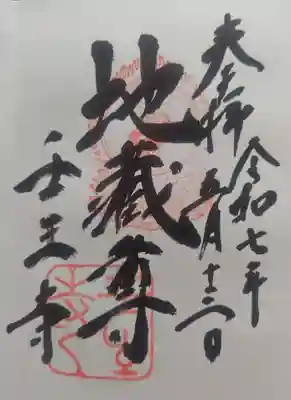 奉拝
令和七年
五月十三日
地蔵尊
壬生寺